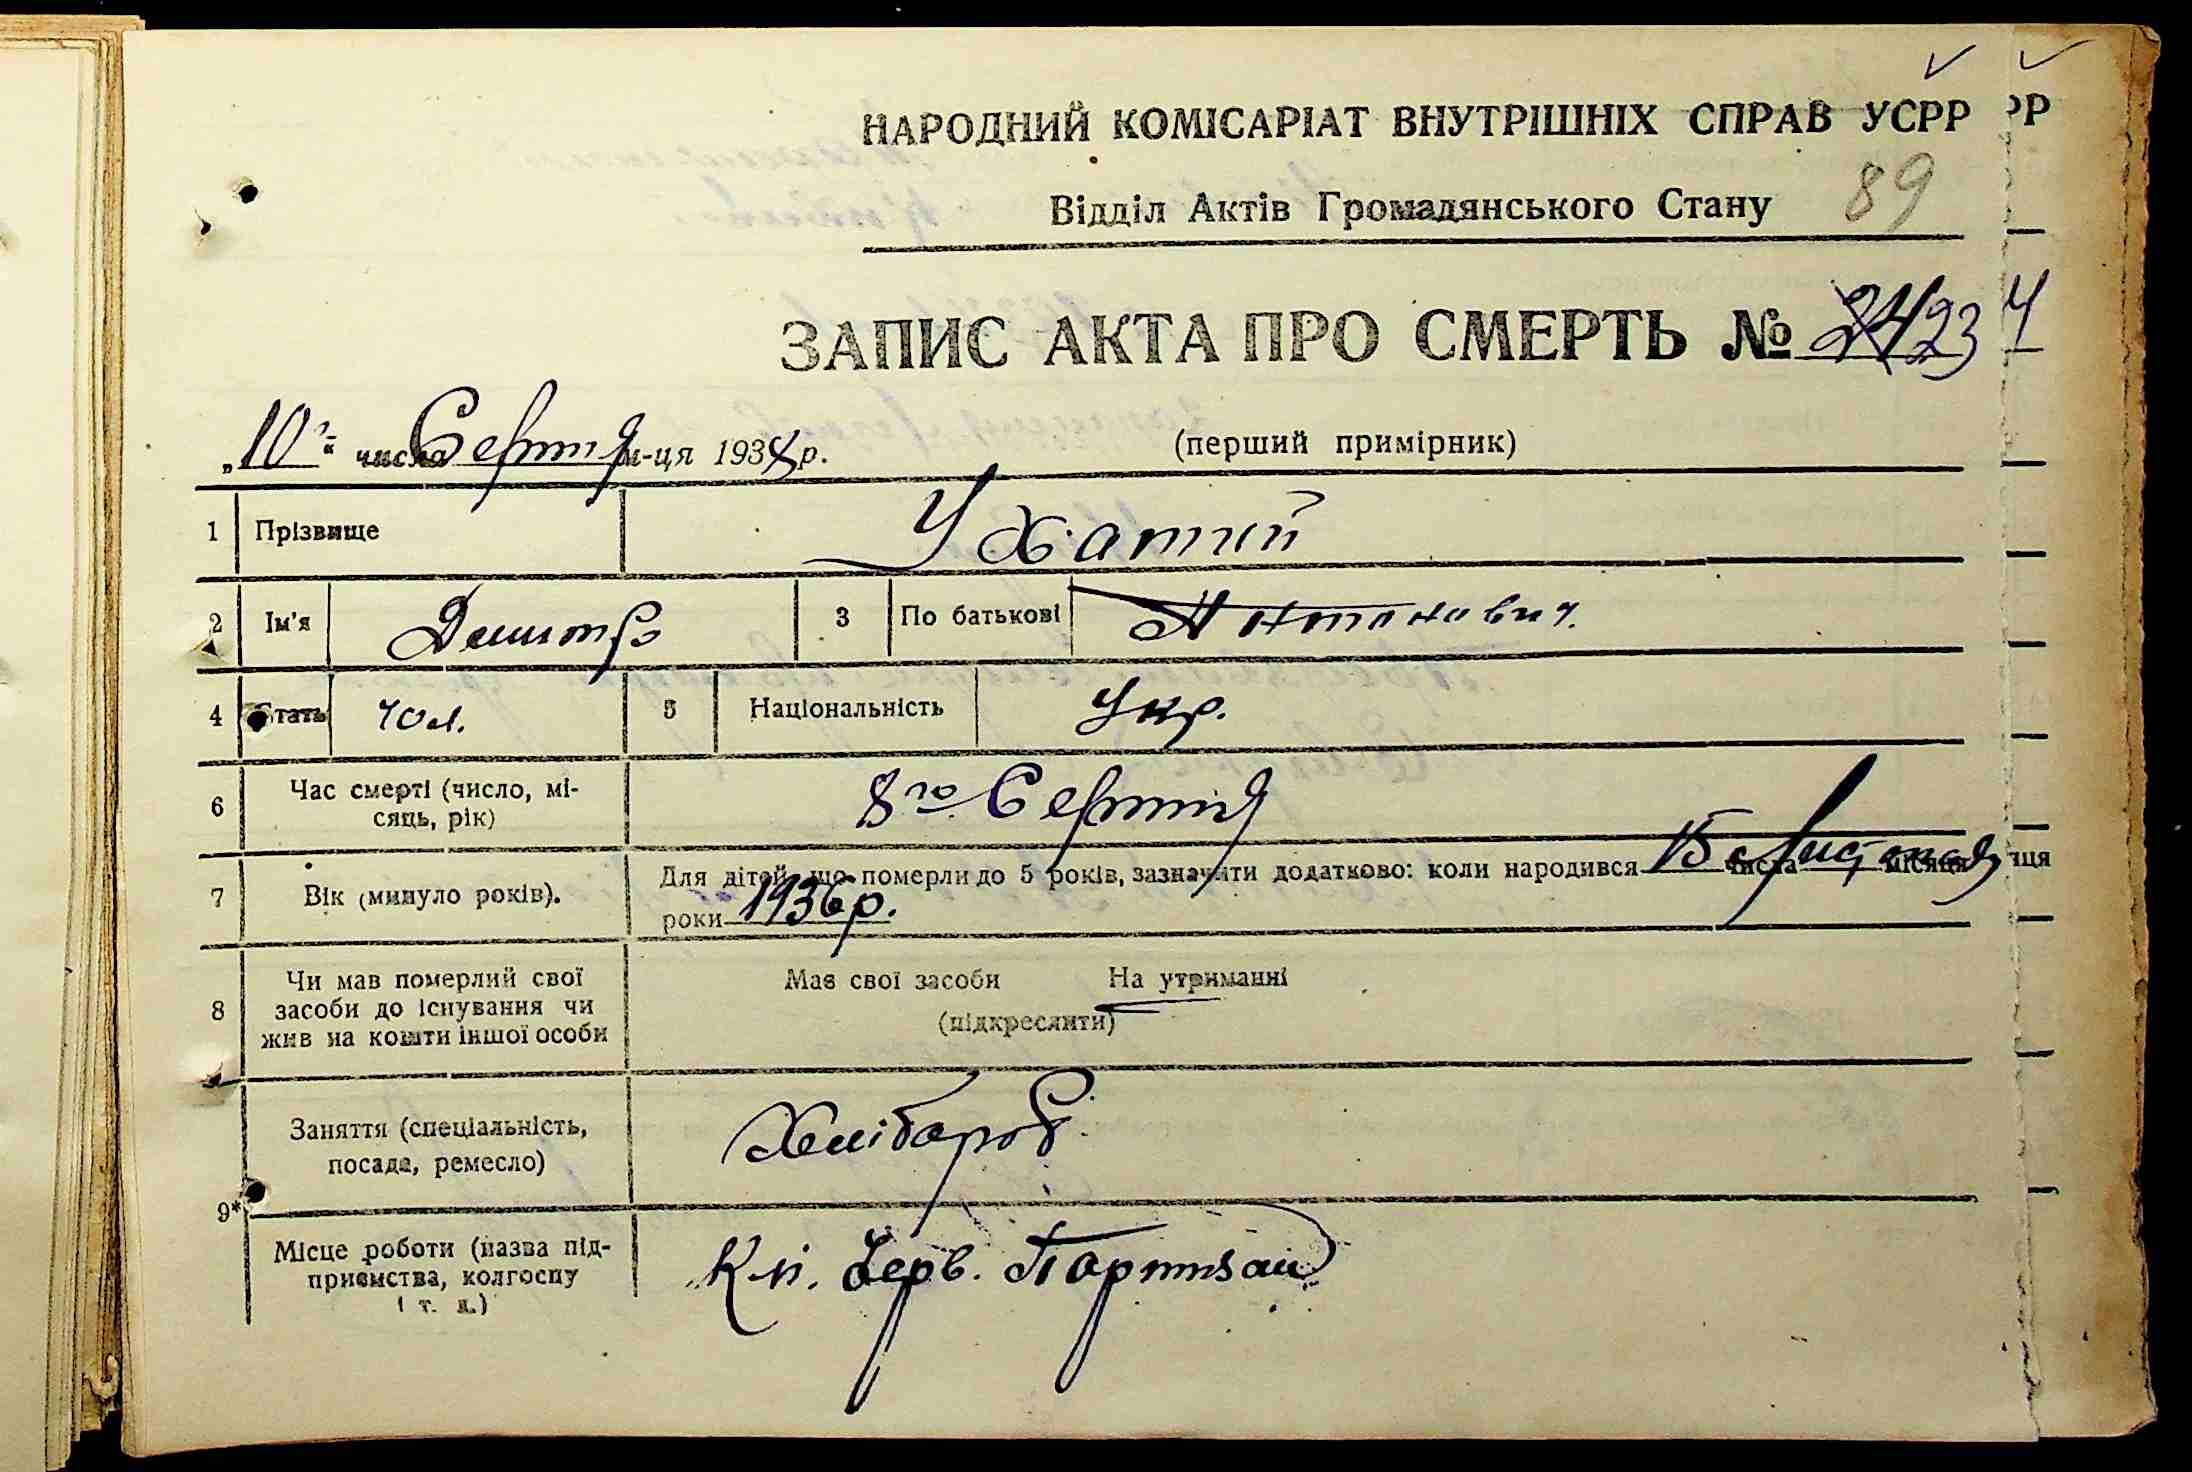 НАРОДНИЙ КОМІСАРІАТ ВНУТРІШНІХ СПРАВ УСРР РР
Відділ Актів Громадянського Стану 89
ЗАПИС АКТА ПРО СМЕРТЬ № 23
„10“ числа Серпня м-ця 1938 р. (перший примірник)
1 Прізвище Ухатий
2 Ім'я Дмитро 3 По батькові Антонович.
4 Стать чол. 5 Національність Укр.
6 Час смерті (число, мі-
сяць, рік) 8го Серпня
7 Вік (минуло років). Для дітей, що померли до 5 років, зазначити додатково: коли народився 15 числа Листопад місяця яця
роки 1936 р.
8 Чи мав померлий свої
засоби до існування чи
жив на кошти іншої особи
Має свої засоби На утриманні
(підкреслити)
9*
Заняття (спеціальність,
посада, ремесло) Хлібороб
Місце роботи (назва під-
приємства, колгоспу
і т. д.) К-п. Черв. Партизан